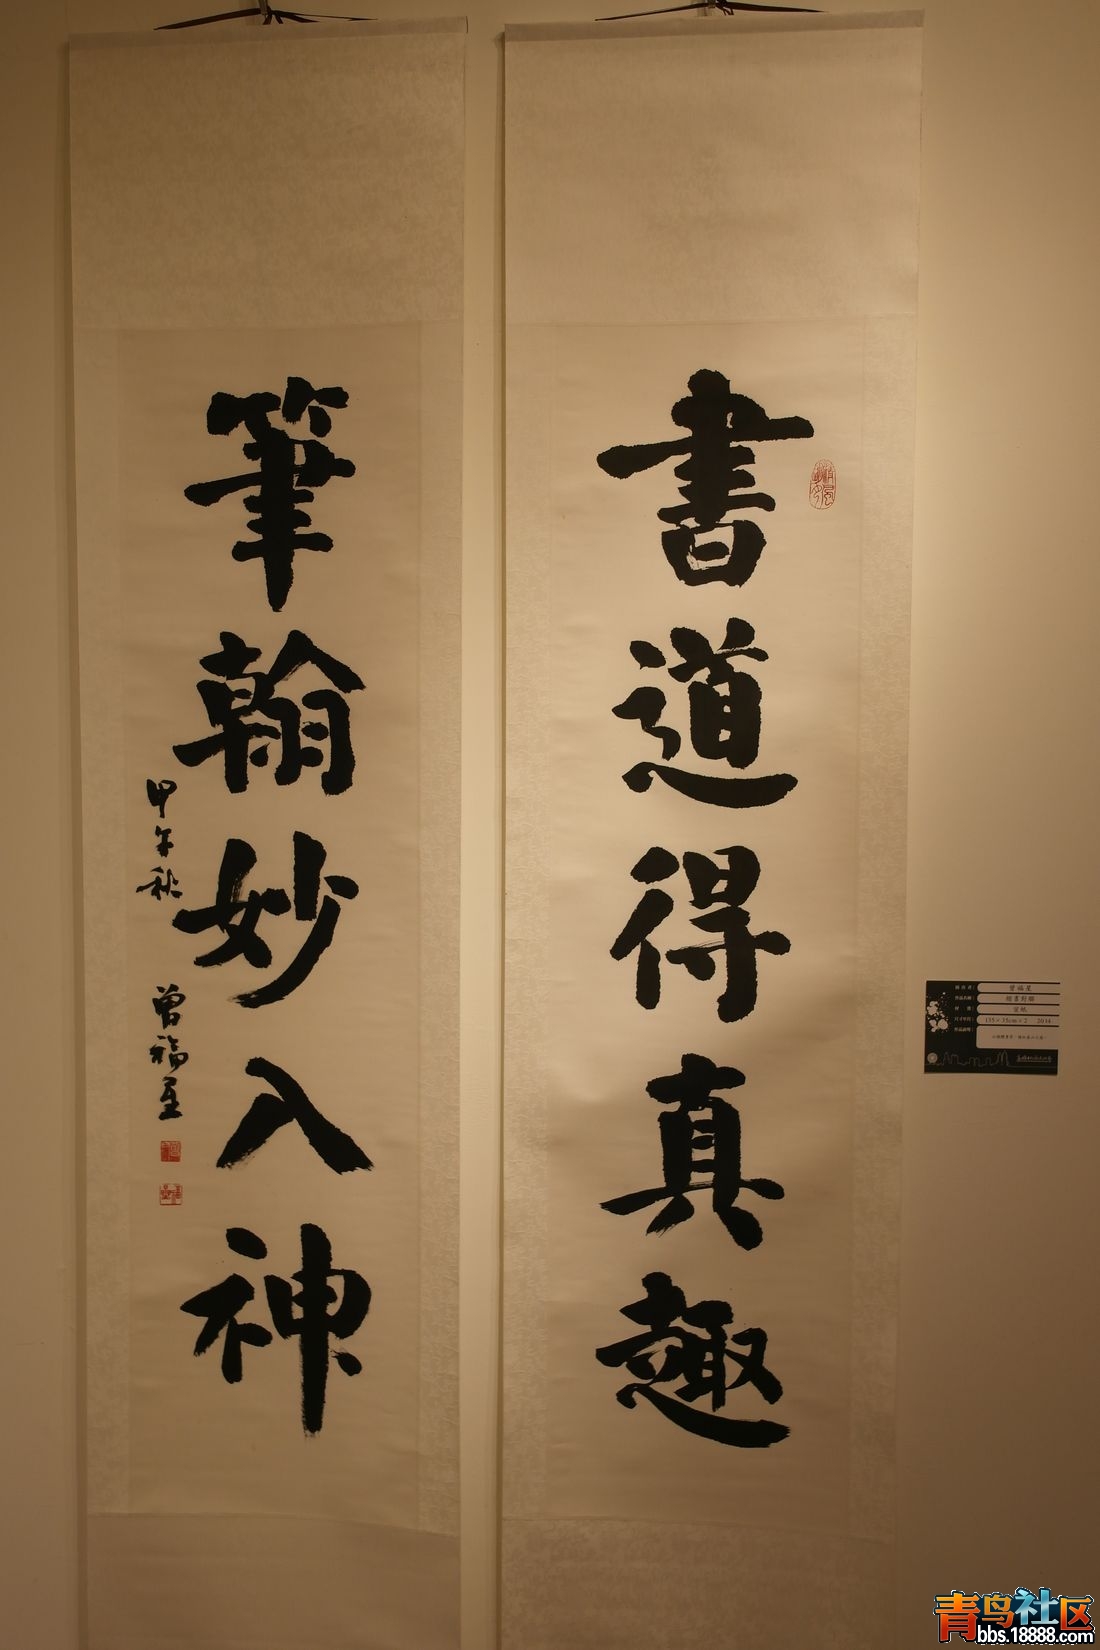 書道得真趣
筆翰妙入神
甲午秋
曾福星
曾福星
楷書對聯
宣紙
135×35cm×2 2014
青鸟社区
bbs.18888.com